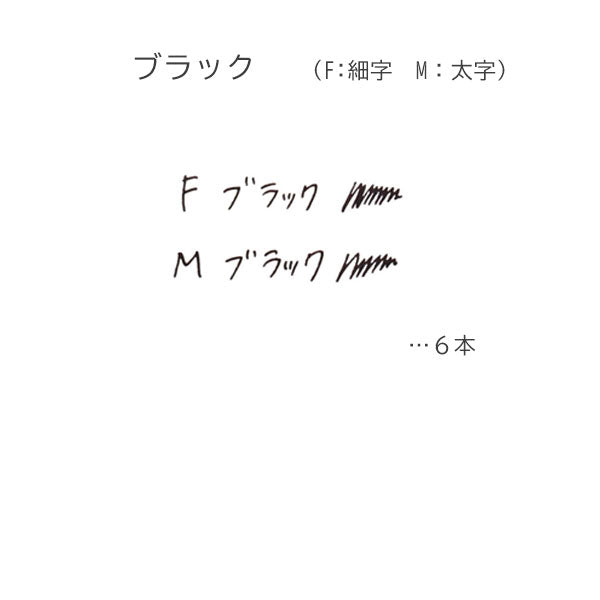 ブラック　　（F:細字　M：太字）
F ブラック
M ブラック
…６本